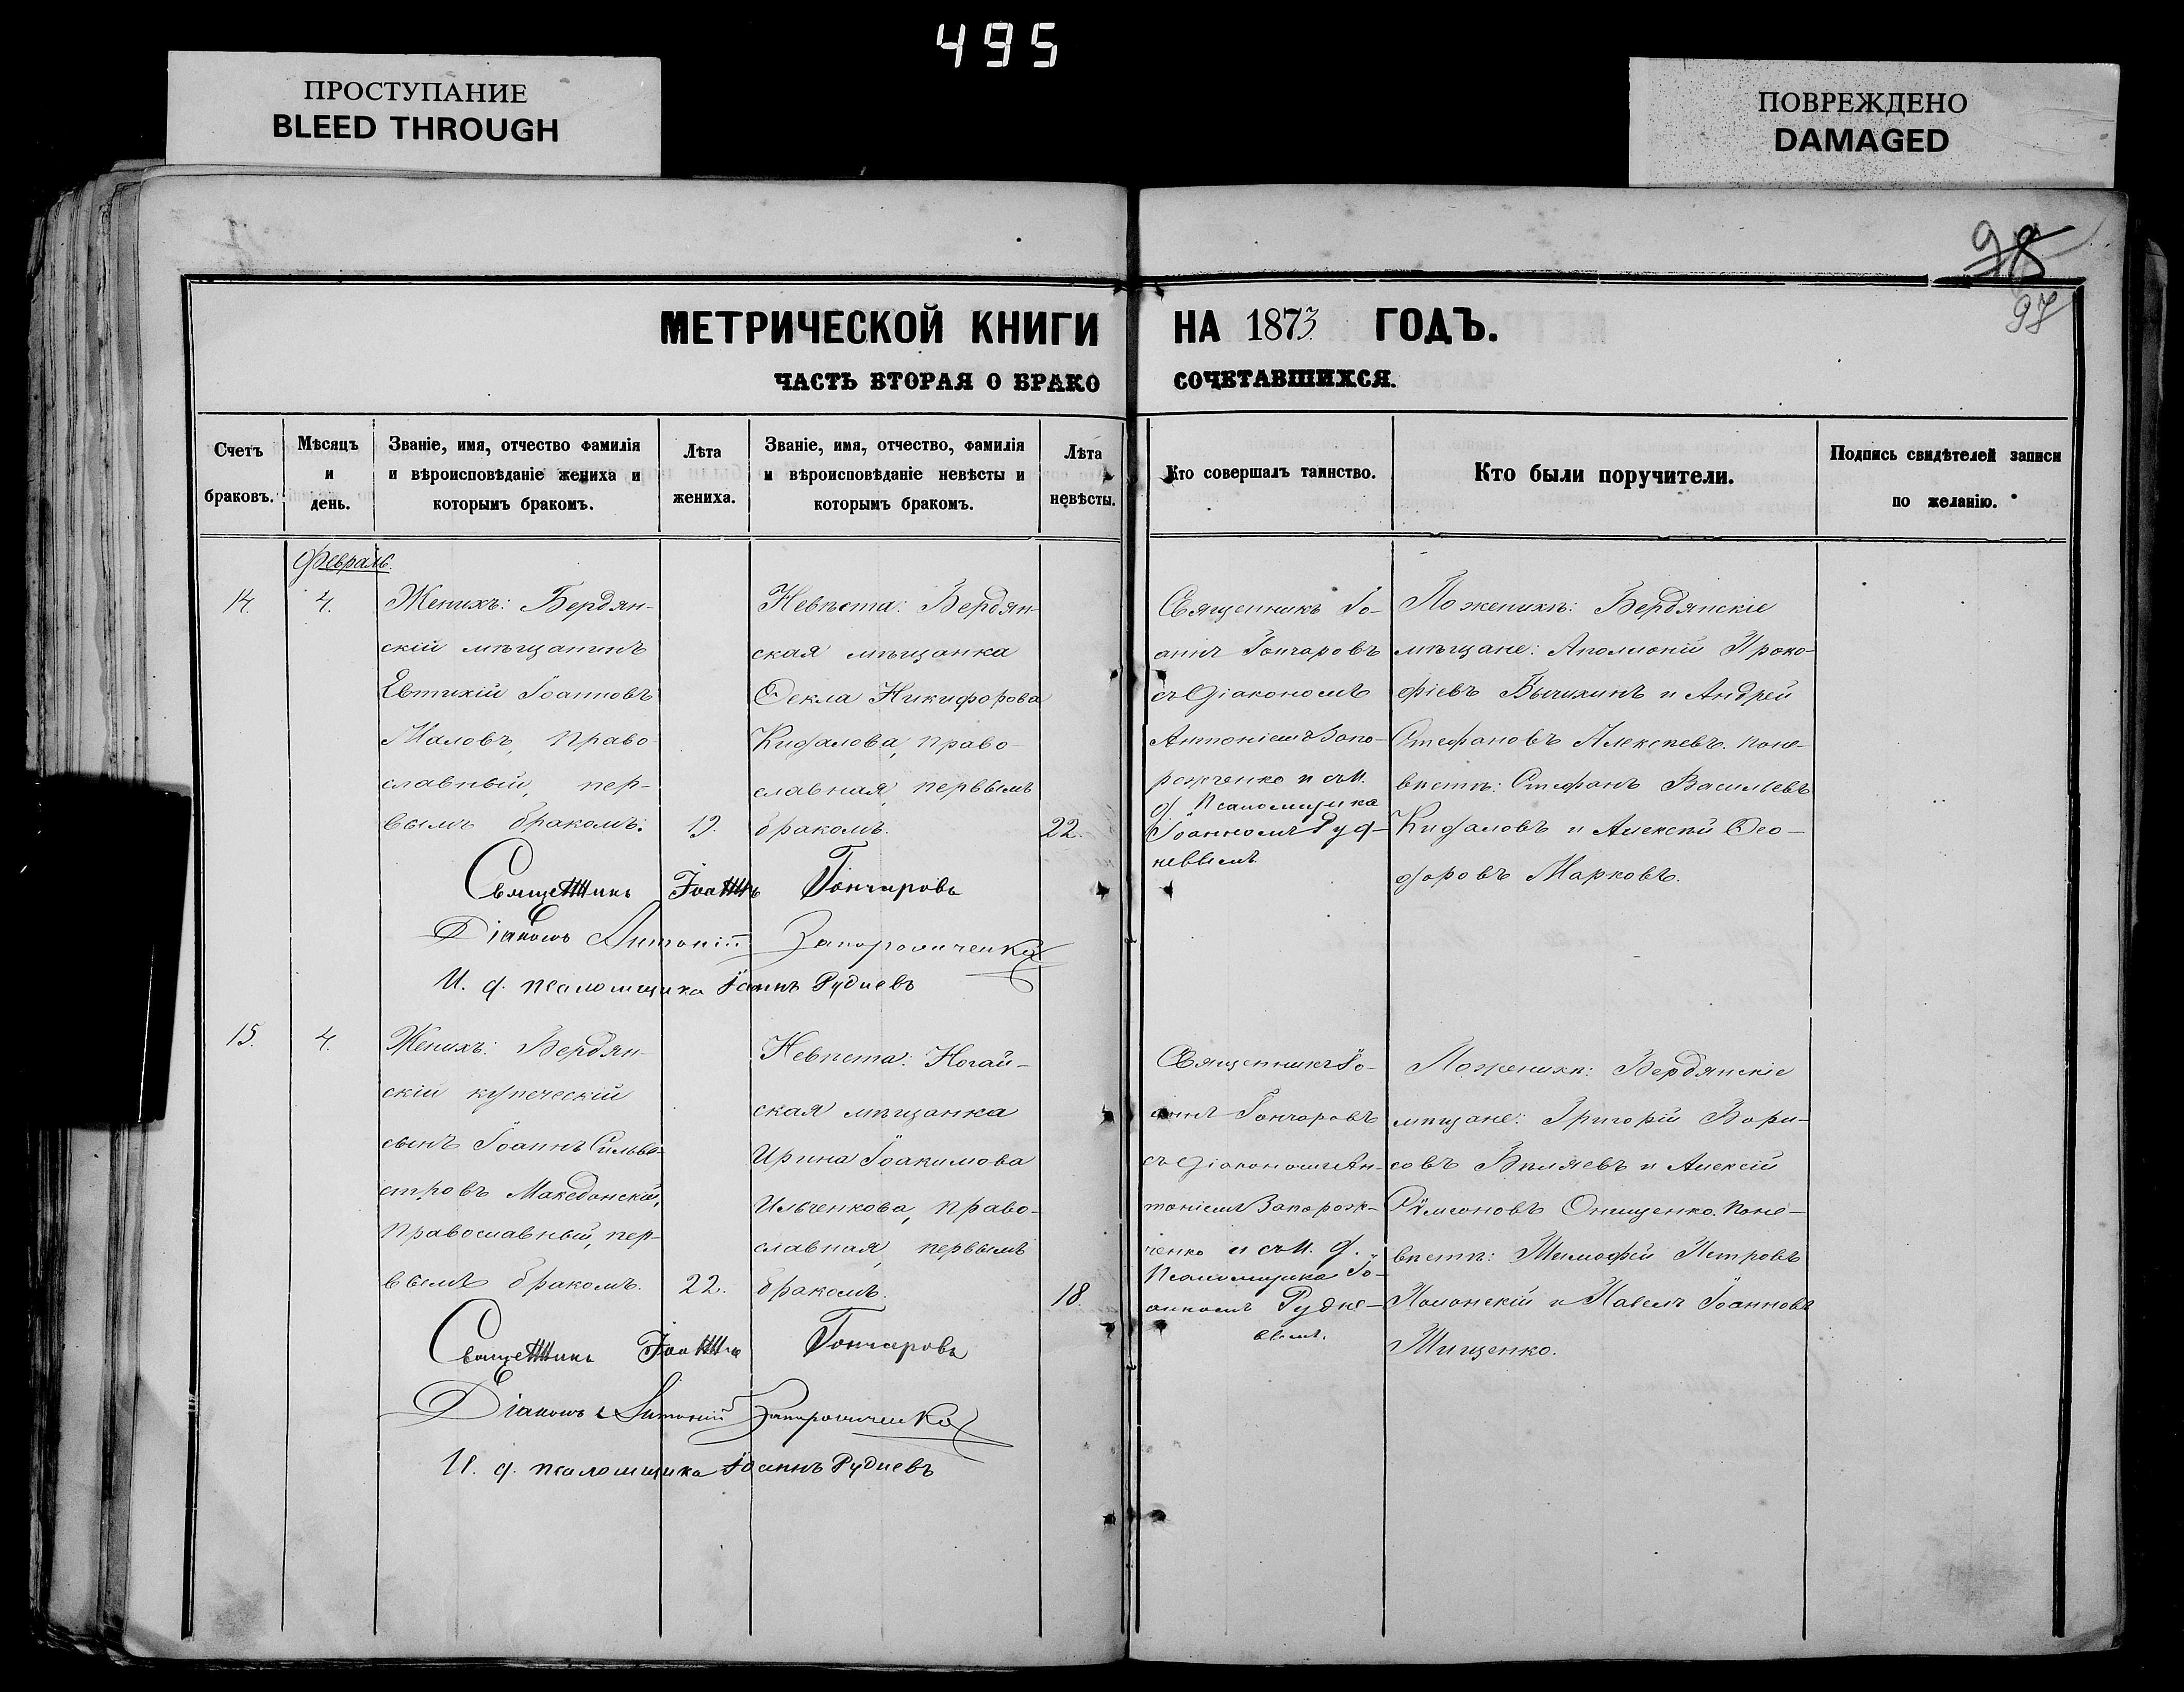 495
ПРОСТУПАНИЕ
BLEED THROUGH
ПОВРЕЖДЕНО
DAMAGED
98
97
МЕТРИЧЕСКОЙ КНИГИ НА 1873 ГОДЪ.
ЧАСТЬ ВТОРАЯ О БРАКОСОЧЕТАВШИХСЯ.
Счетъ
браковъ.
Мѣсяцъ
и
день.
Званіе, имя, отчество фамилія
и вѣроисповѣданіе жениха и
которымъ бракомъ.
Лѣта
жениха.
Званіе, имя, отчество, фамилія
и вѣроисповѣданіе невѣсты и
которымъ бракомъ.
Лѣта
невѣсты.
Кто совершалъ таинство.
Кто были поручители.
Подпись свидѣтелей записи
по желанію.
Февраль.
14.
4.
Женихъ: Бердян-
скій мѣщанинъ
Евтихій Іоанновъ
Маловъ, право
славный, пер-
вымъ бракомъ.
19.
Невѣста: Бердян
ская мѣщанка
Ѳекла Никифорова
Кидалова, право-
славная, первымъ
бракомъ.
22.
Священникъ Іо-
аннъ Гончаровъ
съ Діакономъ
Антоніемъ Запо-
рожченко и съ И.
д. Псаломщика
Іоанномъ Руд-
невымъ
По женихѣ: Бердянскіе
мѣщане: Аполлоній Проко-
фіевъ Бычихинъ и Андрей
Стефановъ Алексѣевъ. По не-
вѣстѣ: Стефанъ Васильевъ
Кидаловъ и Алексѣй Ѳео-
доровъ Марковъ.
Священникъ Іоаннъ Гончаровъ
Діаконъ Антоній Запорожченко
И. д. псаломщика Іоаннъ Рудневъ
15.
4.
Женихъ: Бердян-
скій купеческій
сынъ Іоаннъ Сильве-
стровъ Македонскій,
Православный, пер-
вымъ бракомъ.
22.
Невѣста: Ногай-
ская мѣщанка
Ирина Іоакимова
Ильченкова, право-
славная, первымъ
бракомъ.
18.
Священникъ Іо-
аннъ Гончаровъ
съ Діакономъ Ан-
тоніемъ Запорож-
ченко и съ И. д.
Псаломщика Іо-
анномъ Рудне-
вымъ.
По женихѣ: Бердянскіе
мѣщане: Григорій Бори-
совъ Бѣляевъ и Алексій
Сѵмеоновъ Онищенко. По не-
вѣстѣ: Тимофей Петровъ
Полонскій и Павелъ Іоанновъ
Тищенко.
Священникъ Іоаннъ Гончаровъ
Діаконъ Антоній Запорожченко
И. д. псаломщика Іоаннъ Рудневъ